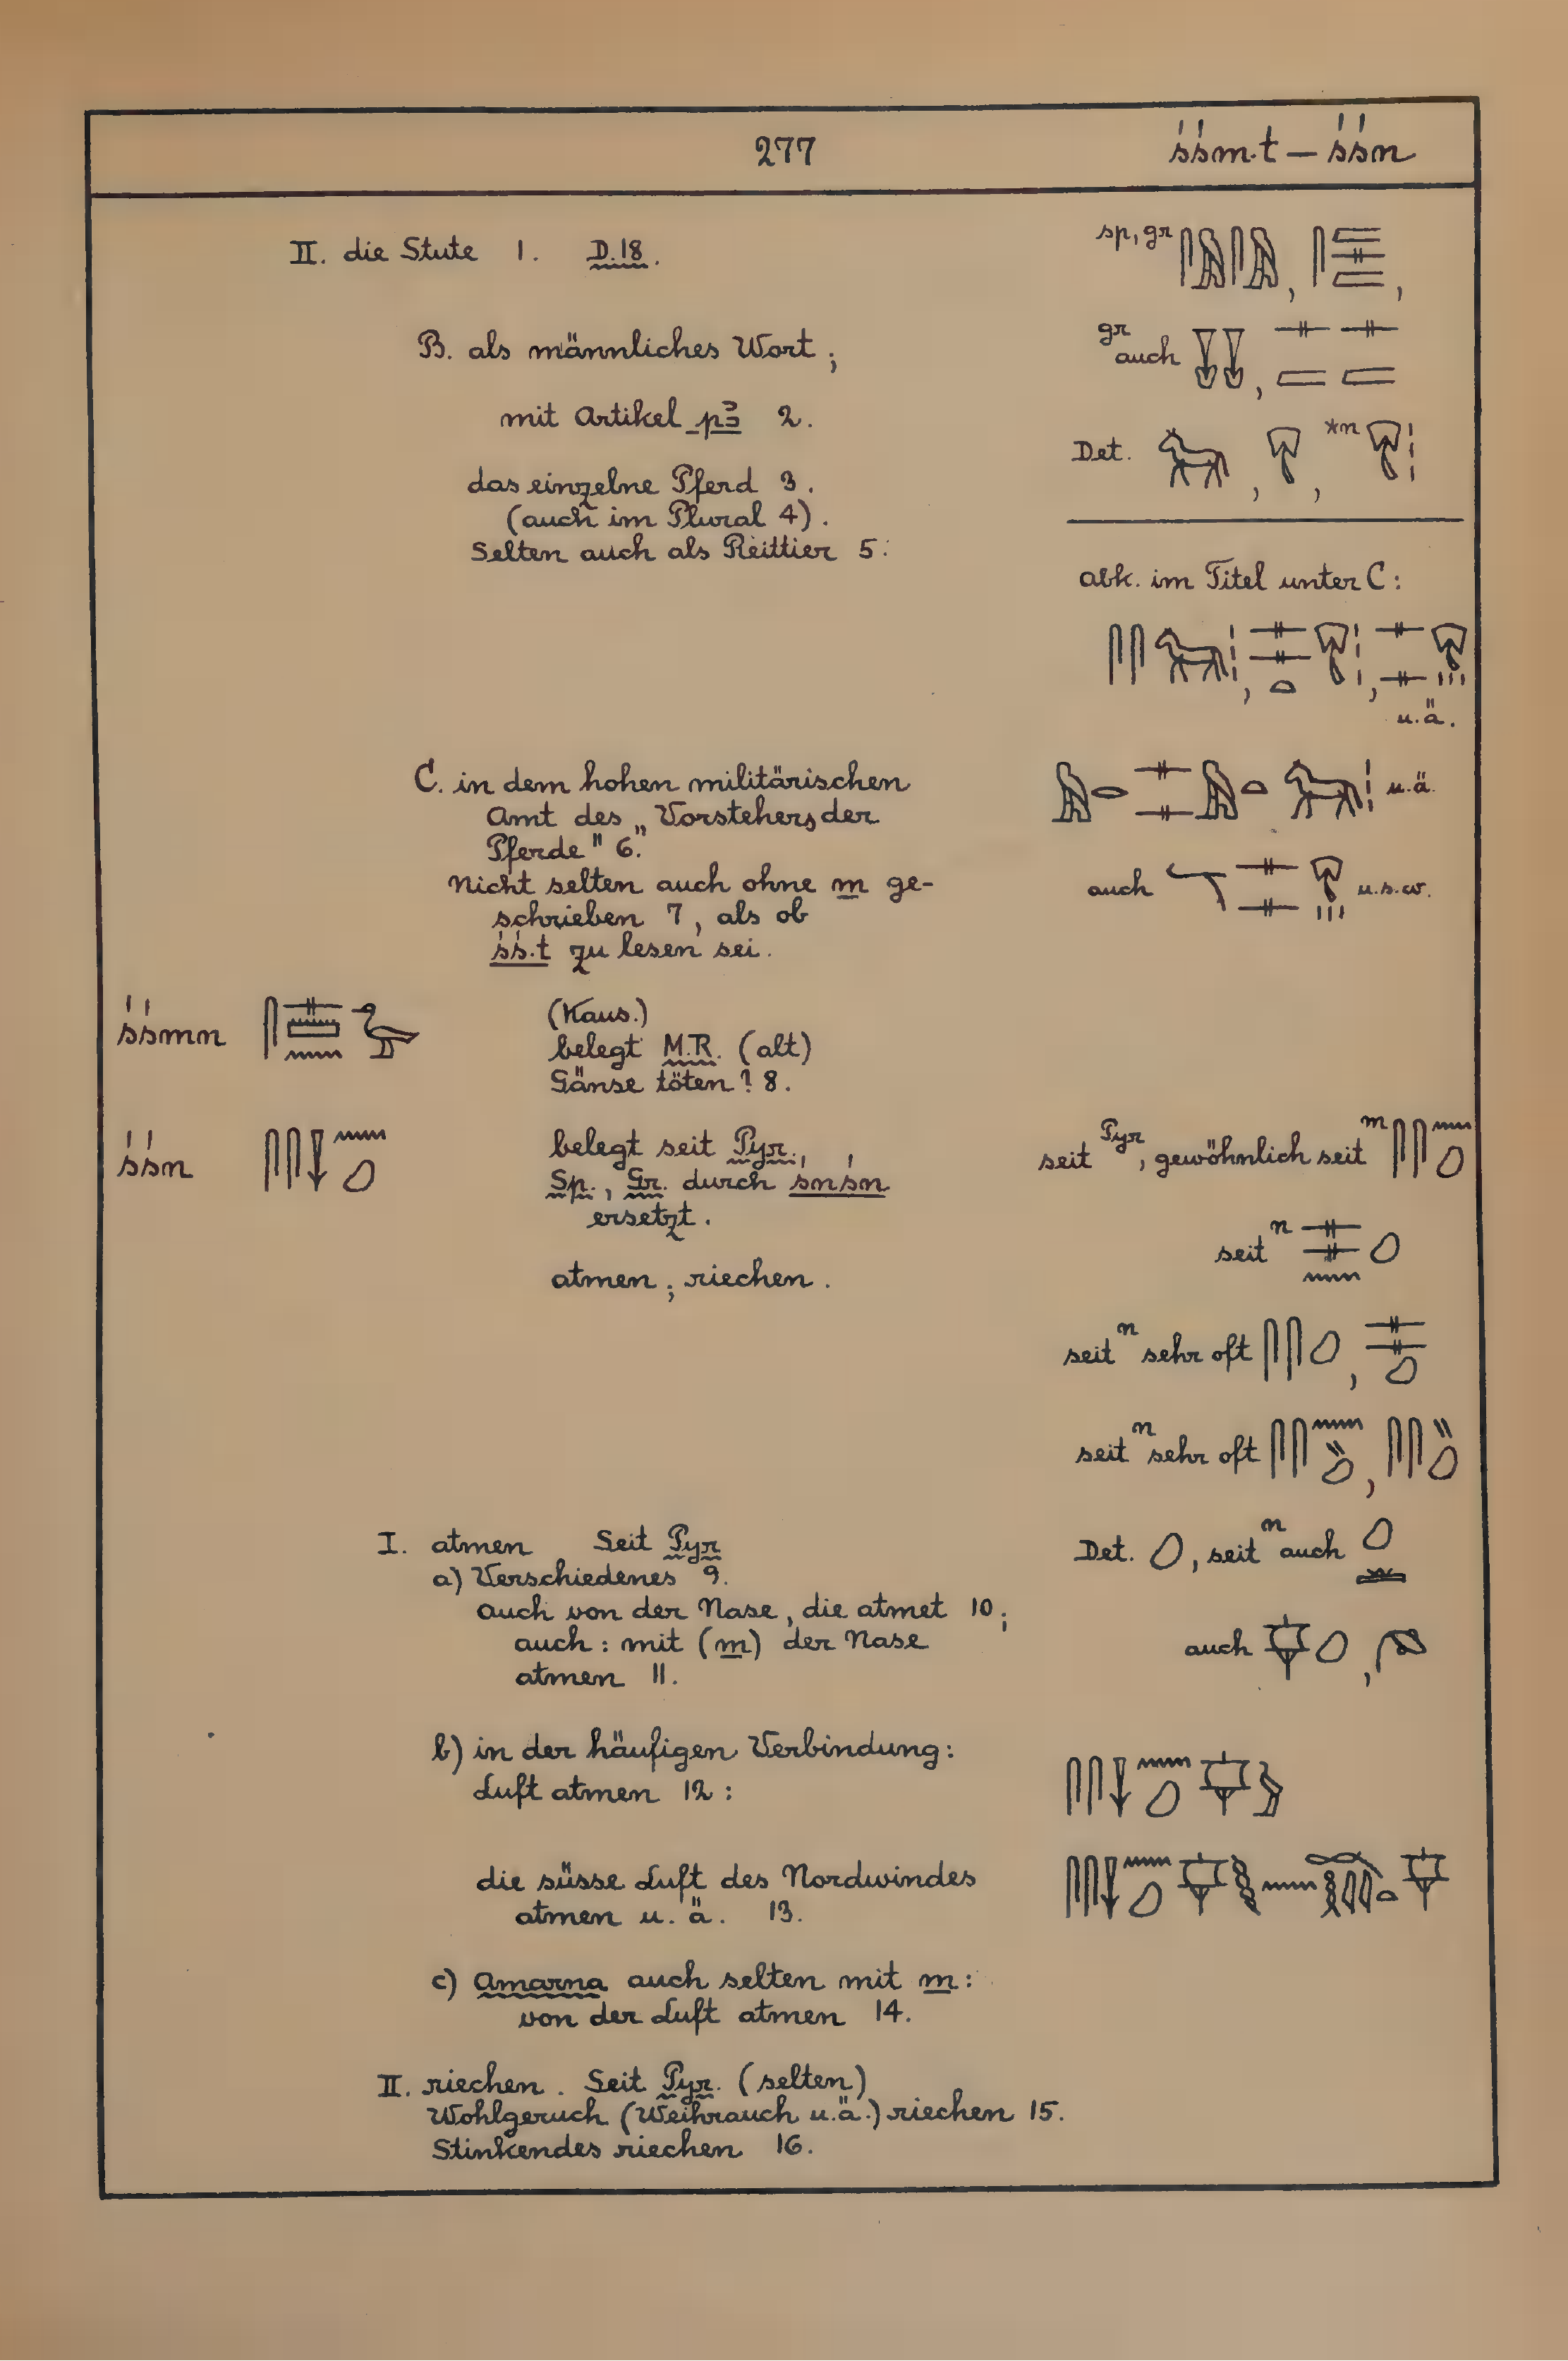 277
śśm.t — śśn
II. die Stute 1. D.18.
sp, gr
B. als männliches Wort;
gr auch
mit Artikel pꜣ 2.
Det. *n
das einzelne Pferd 3.
(auch im Plural 4).
Selten auch als Reittier 5.
abk. im Titel unter C:
u.ä.
C. in dem hohen militärischen
Amt des „Vorstehers der
Pferde" 6.
u.ä.
Nicht selten auch ohne m ge-
schrieben 7, als ob
śś.t zu lesen sei.
auch u.s.w.
śśmn
(Kaus.)
belegt M.R. (alt)
Gänse töten? 8.
śśn
belegt seit Pyr.,
Sp., Gr. durch śnśn
ersetzt.
seit Pyr, gewöhnlich seit m
atmen; riechen.
seit n
seit n sehr oft
seit n sehr oft
I. atmen Seit Pyr
a) Verschiedenes 9.
auch von der Nase, die atmet 10;
auch: mit (m) der Nase
atmen 11.
Det. , seit n auch
auch
b) in der häufigen Verbindung:
Luft atmen 12:
die süsse Luft des Nordwindes
atmen u. ä. 13.
c) Amarna auch selten mit m:
von der Luft atmen 14.
II. riechen. Seit Pyr. (selten)
Wohlgeruch (Weihrauch u.ä.) riechen 15.
Stinkendes riechen 16.